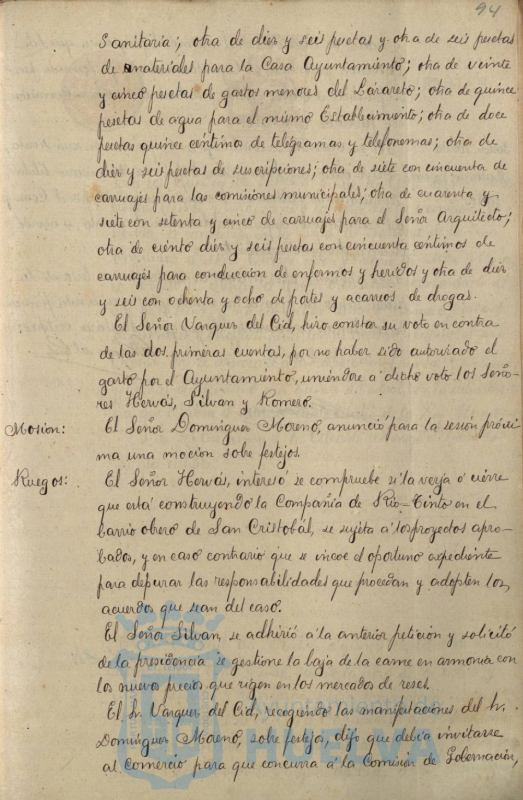 94
Sanitaria; otra de diez y seis pesetas y otra de seis pesetas
de materiales para la Casa Ayuntamiento; otra de veinte
y cinco pesetas de gastos menores del Lázareto; otra de quince
pesetas de agua para el mismo Establecimiento; otra de doce
pesetas quince céntimos de telégramas y telefonemas; otra de
diez y seis pesetas de suscripciones; otra de siete con cincuenta de
carruajes para las comisiones municipales; otra de cuarenta y
siete con setenta y cinco de carruajes para el Señor Arquitecto;
otra de ciento diez y seis pesetas con cincuenta céntimos de
carruajes para conducción de enfermos y heridos y otra de diez
y seis con ochenta y ocho de portes y acarreos de drogas.
El Señor Vazquez del Cid, hizo constar su voto en contra
de las dos primeras cuentas, por no haber sido autorizado el
gasto por el Ayuntamiento, uniéndose a dicho voto los Seño-
res Hervás, Silvan y Romero.
Mosion: El Señor Dominguez Moreno, anunció para la sesión próxi-
ma una moción sobre festejos.
Ruegos: El Señor Hervás, interesó se compruebe si la verja ó cierre
que está construyendo la Compañia de Rio-Tinto en el
barrio obrero de San Cristobál, se sujeta a los proyectos apro-
bados, y en caso contrario que se incoe el oportuno expediente
para depurar las responsabilidades que procedan y adopten los
acuerdos que sean del caso.
El Señor Silvan, se adhirió a la anterior petición y solicitó
de la presidencia se gestione la baja de la carne en armonia con
los nuevos precios que rigen en los mercados de reses.
El Sr. Vazquez del Cid, recogiendo las manifestaciones del Sr.
Dominguez Moreno, sobre festejos, dijo que debia invitarse
al Comercio para que concurra a la Comisión de Gobernación,
HUELVA